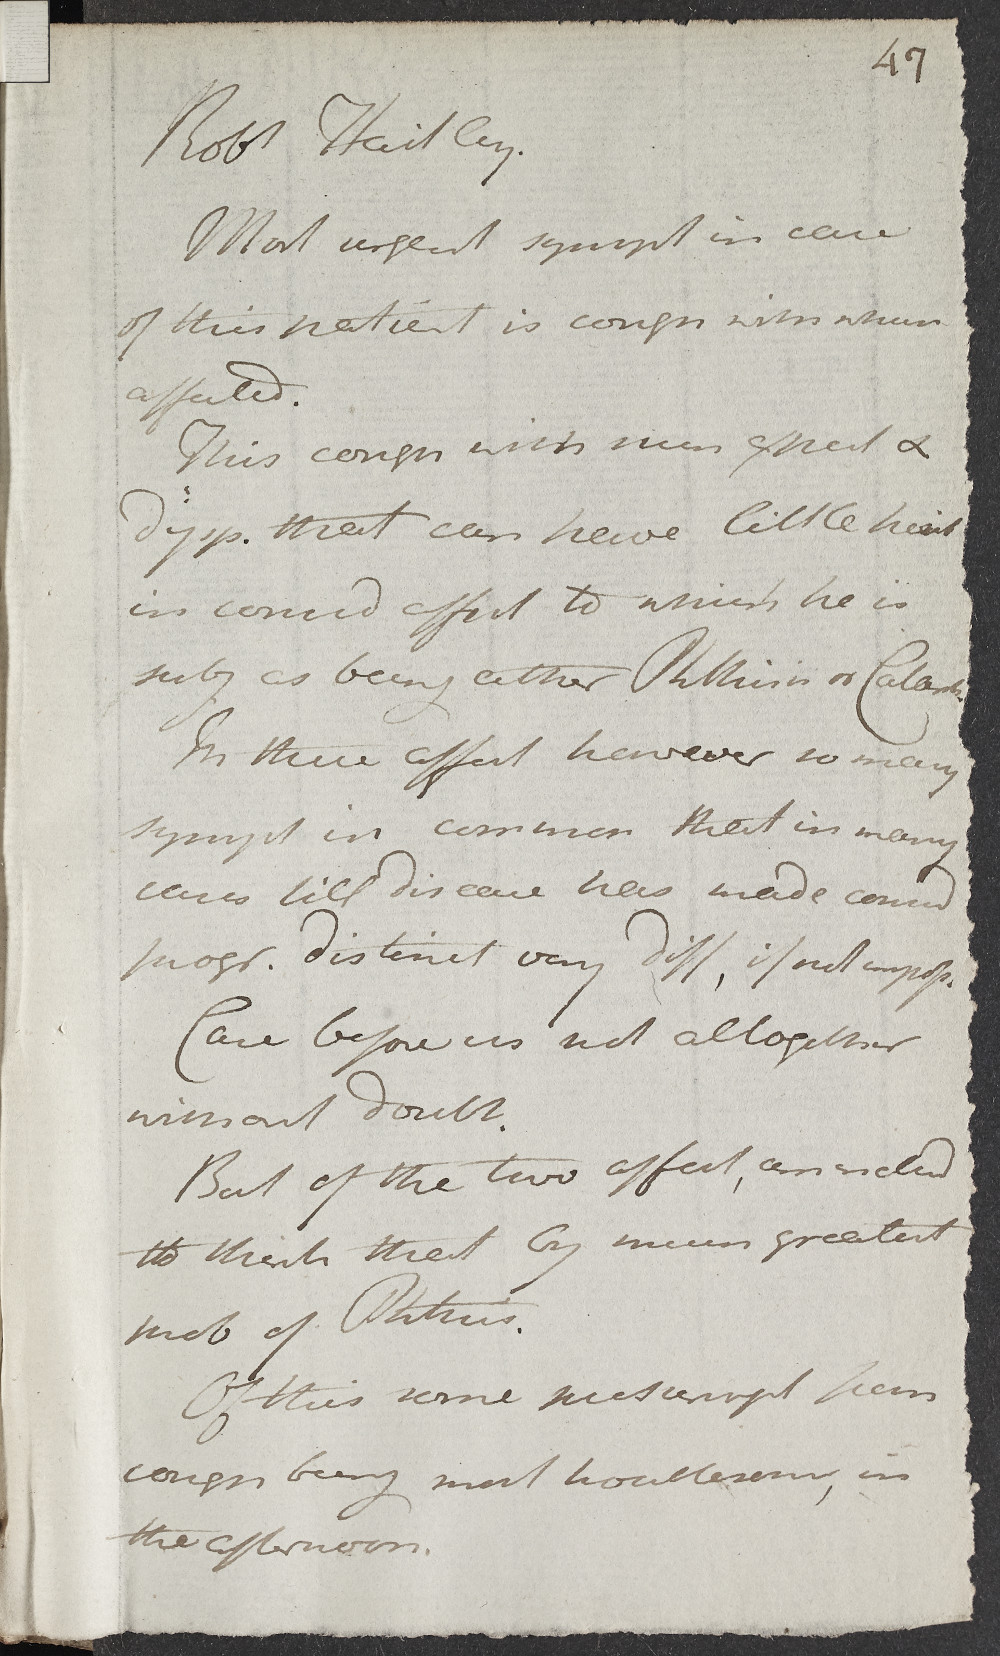 47
Robt Hartley.
Most urgent sympt in case
of this patient is cough with which
affected.
This cough with such expect &
dysp. that can have little hesit
in consid affect to which he is
subj as being either Phthisis or Catarrh.
In these affect however so many
sympt in common that in many
cases till disease has made consid
progr. distinct very diff, if not imposs.
Case before us not altogether
without doubt.
But of the two affect, am inclind
to think that by much greatest
prob of Phthisis.
Of this some presumpt from
cough being most troublesome, in
the afternoon.